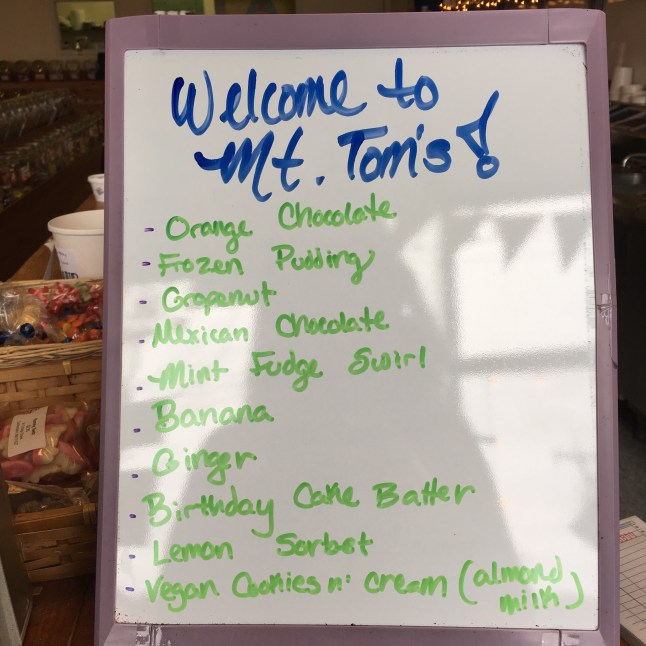 Welcome to
Mt. Tom's!
- Orange Chocolate
- Frozen Pudding
- Grapenut
- Mexican Chocolate
- Mint Fudge Swirl
- Banana
- Ginger
- Birthday Cake Batter
- Lemon Sorbet
- Vegan Cookies n' cream (almond
milk)